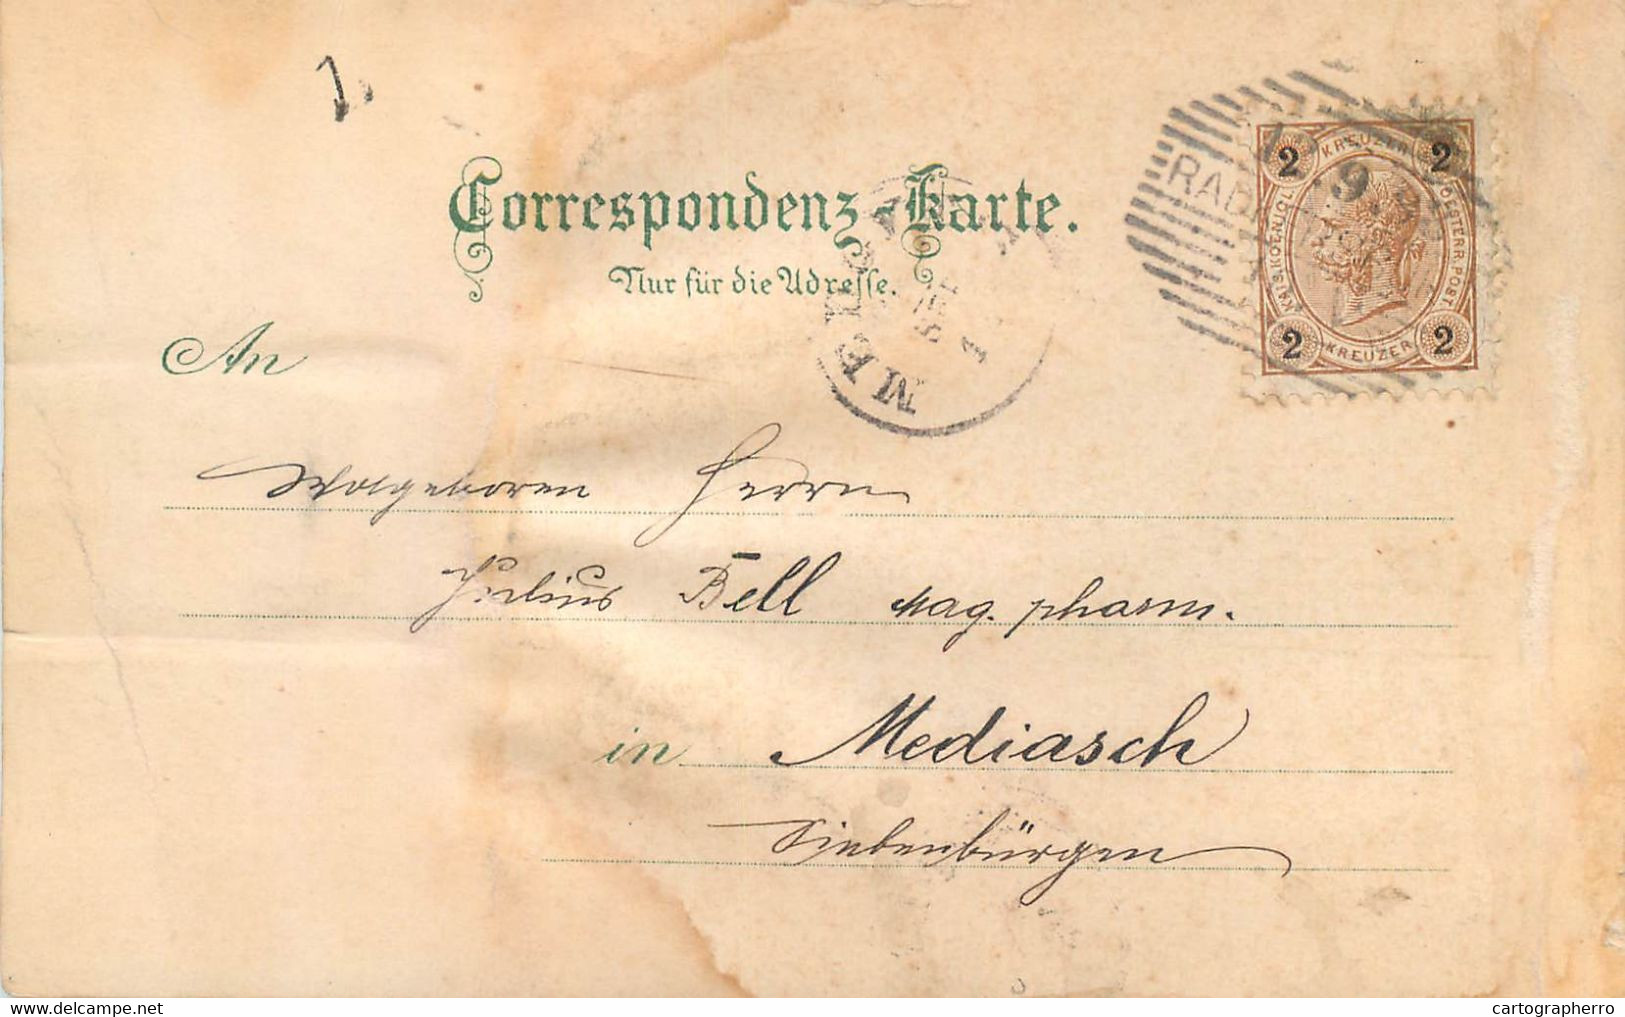 1.
Correspondenz-Karte.
Nur für die Adresse.
An
Wolgeboren Herrn
Julius Bell mag. pharm.
in Mediasch
Siebenbürgen
2 KREUZER 2
KAIS. KOENIGL. OESTERR. POST
2 KREUZER 2
RAD
MEDGYES
www.delcampe.net
cartographerro